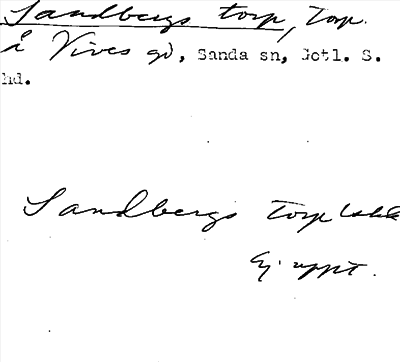 Sandbergs torp, Torp.
å Vives gd, Sanda sn, Gotl. S.
hd.
Sandbergs torp
Ej uppt.